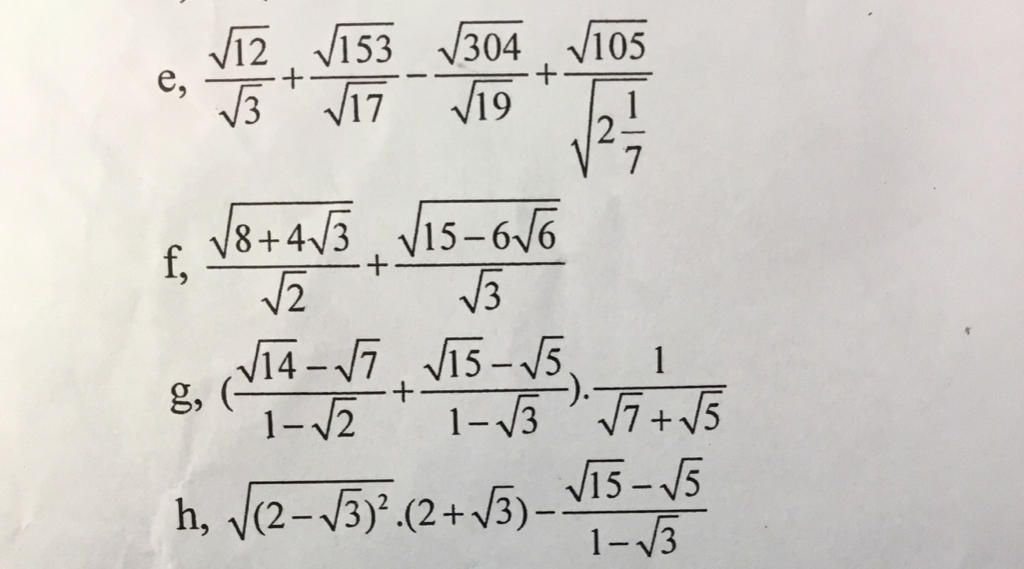 e, \frac{\sqrt{12}}{\sqrt{3}}+\frac{\sqrt{153}}{\sqrt{17}}-\frac{\sqrt{304}}{\sqrt{19}}+\frac{\sqrt{105}}{\sqrt{2\frac{1}{7}}}
f, \frac{\sqrt{8+4\sqrt{3}}}{\sqrt{2}}+\frac{\sqrt{15-6\sqrt{6}}}{\sqrt{3}}
g, (\frac{\sqrt{14}-\sqrt{7}}{1-\sqrt{2}}+\frac{\sqrt{15}-\sqrt{5}}{1-\sqrt{3}}).\frac{1}{\sqrt{7}+\sqrt{5}}
h, \sqrt{(2-\sqrt{3})^2}.(2+\sqrt{3})-\frac{\sqrt{15}-\sqrt{5}}{1-\sqrt{3}}